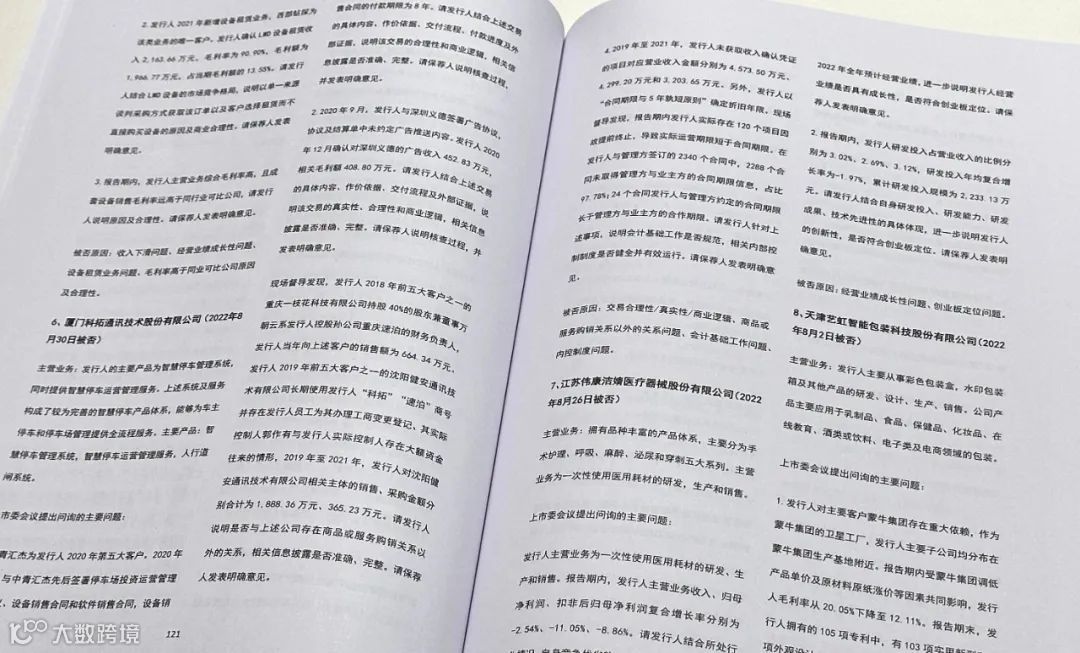 2. 发行人 2021 年新增设备租赁业务，西部钻探为
该类业务的唯一客户。发行人确认 LWD 设备租赁收
入 2,163.66 万元，毛利率为 90.90%，毛利额
1,966.77 万元，占当期毛利额的 13.55%。请发行
人结合 LWD 设备的市场竞争格局，说明以单一来源
谈判采购方式获取该订单以及客户选择租赁而不
直接购买设备的原因及商业合理性。请保荐人发表
明确意见。
3. 报告期内，发行人主营业务综合毛利率高，且成
套设备销售毛利率远高于同行业可比公司，请发行
人说明原因及合理性。请保荐人发表明确意见。
被否原因：收入下滑问题、经营业绩成长性问题、
设备租赁业务问题、毛利率高于同业可比公司原因
及合理性。
6、厦门科拓通讯技术股份有限公司（2022年8
月30日被否）
主营业务：发行人的主要产品为智慧停车管理系统，
同时提供智慧停车运营管理服务。上述系统及服务
构成了较为完善的智慧停车产品体系，能够为车主
停车和停车场管理提供全流程服务。主要产品：智
慧停车管理系统，智慧停车运营管理服务，人行道
闸系统。
市委会议提出问询的主要问题：
青汇杰为发行人 2020 年第五大客户，2020 年
与中青汇杰先后签署停车场投资运营管理
、设备销售合同和软件销售合同，设备销
大数跨境
121
售合同的付款期限为 8 年。请发行人结合上述交易
的具体内容、作价依据、交付流程、付款进度及外
部证据，说明该交易的合理性和商业逻辑，相关信
息披露是否准确、完整。请保荐人说明核查过程，
并发表明确意见。
2. 2020 年 9 月，发行人与深圳义德签署广告协议，
协议及结算单中未约定广告推送内容。发行人 2020
年 12 月确认对深圳义德的广告收入 452.83 万元，
相关毛利额 408.80 万元。请发行人结合上述交易
的具体内容、作价依据、交付流程及外部证据，说
明该交易的真实性、合理性和商业逻辑，相关信息
披露是否准确、完整。请保荐人说明核查过程，并
发表明确意见。
现场督导发现，发行人 2018 年前五大客户之一的
重庆一枝花科技有限公司持股 40%的股东兼董事万
朝云系发行人控股孙公司重庆速泊的财务负责人，
发行人当年向上述客户的销售额为 664.34 万元，
发行人 2019 年前五大客户之一的沈阳健安通讯技
术有限公司长期使用发行人“科拓”“速泊”商号
并存在发行人员工为其办理工商变更登记，其实际
控制人郭作有与发行人实际控制人存在大额资金
往来的情形，2019 年至 2021 年，发行人对沈阳健
安通讯技术有限公司相关主体的销售、采购金额分
别合计为 1,888.36 万元、365.23 万元。请发行人
说明是否与上述公司存在商品或服务购销关系以
外的关系，相关信息披露是否准确、完整。请保荐
人发表明确意见。
4. 2019 年至 2021 年，发行人未获取收入确认凭证
的项目对应营业收入金额分别为 4,573.50 万元、
4,299.20 万元和 3,203.65 万元。另外，发行人以
“合同期限与 5 年孰短原则”确定折旧年限，现场
督导发现，报告期内发行人实际存在 120 个项目因
故提前终止，导致实际运营期限短于合同期限。在
发行人与管理方签订的 2340 个合同中，2288 个合
同未取得管理方与业主方的合同期限信息，占比
97.78%；24 个合同发行人与管理方约定的合同期限
长于管理方与业主方的合作期限。请发行人针对上
述事项，说明会计基础工作是否规范，相关内部控
制制度是否健全并有效运行。请保荐人发表明确意
见。
被否原因：交易合理性/真实性/商业逻辑、商品或
服务购销关系以外的关系问题、会计基础工作问题、
内控制度问题。
7、江苏伟康洁婧医疗器械股份有限公司（2022
年8月26日被否）
主营业务：拥有品种丰富的产品体系，主要分为手
术护理、呼吸、麻醉、泌尿和穿刺五大系列。主营
业务为一次性使用医用耗材的研发，生产和销售。
上市委会议提出问询的主要问题：
发行人主营业务为一次性使用医用耗材的研发、生
产和销售。报告期内，发行人主营业务收入、归母
净利润、扣非后归母净利润复合增长率分别为
-2.54%、-11.05%、-8.86%。请发行人结合所处行
2022 年全年预计经营业绩，进一步说明发行人经营
业绩是否具有成长性，是否符合创业板定位。请保
荐人发表明确意见。
2. 报告期内，发行人研发投入占营业收入的比例分
别为 3.02%、2.69%、3.12%，研发投入年均复合增
长率为-1.97%，累计研发投入规模为 2,233.13 万
元。请发行人结合自身研发投入、研发能力、研发
成果、技术先进性的具体体现，进一步说明发行人
的创新性，是否符合创业板定位。请保荐人发表明
确意见。
被否原因：经营业绩成长性问题、创业板定位问题。
8、天津艺虹智能包装科技股份有限公司（2022
年8月2日被否）
主营业务：发行人主要从事彩色包装盒，水印包装
箱及其他产品的研发、设计、生产、销售。公司产
品主要应用于乳制品、食品、保健品、化妆品、在
线教育、酒类或饮料、电子类及电商领域的包装。
上市委会议提出问询的主要问题：
1. 发行人对主要客户蒙牛集团存在重大依赖，作为
蒙牛集团的卫星工厂，发行人主要子公司均分布在
蒙牛集团生产基地附近。报告期内受蒙牛集团调低
产品单价及原材料原纸涨价等因素共同影响，发行
人毛利率从 20.05%下降至 12.11%。报告期末，发
行人拥有的 105 项专利中，有 103 项实用新型
项外观设计